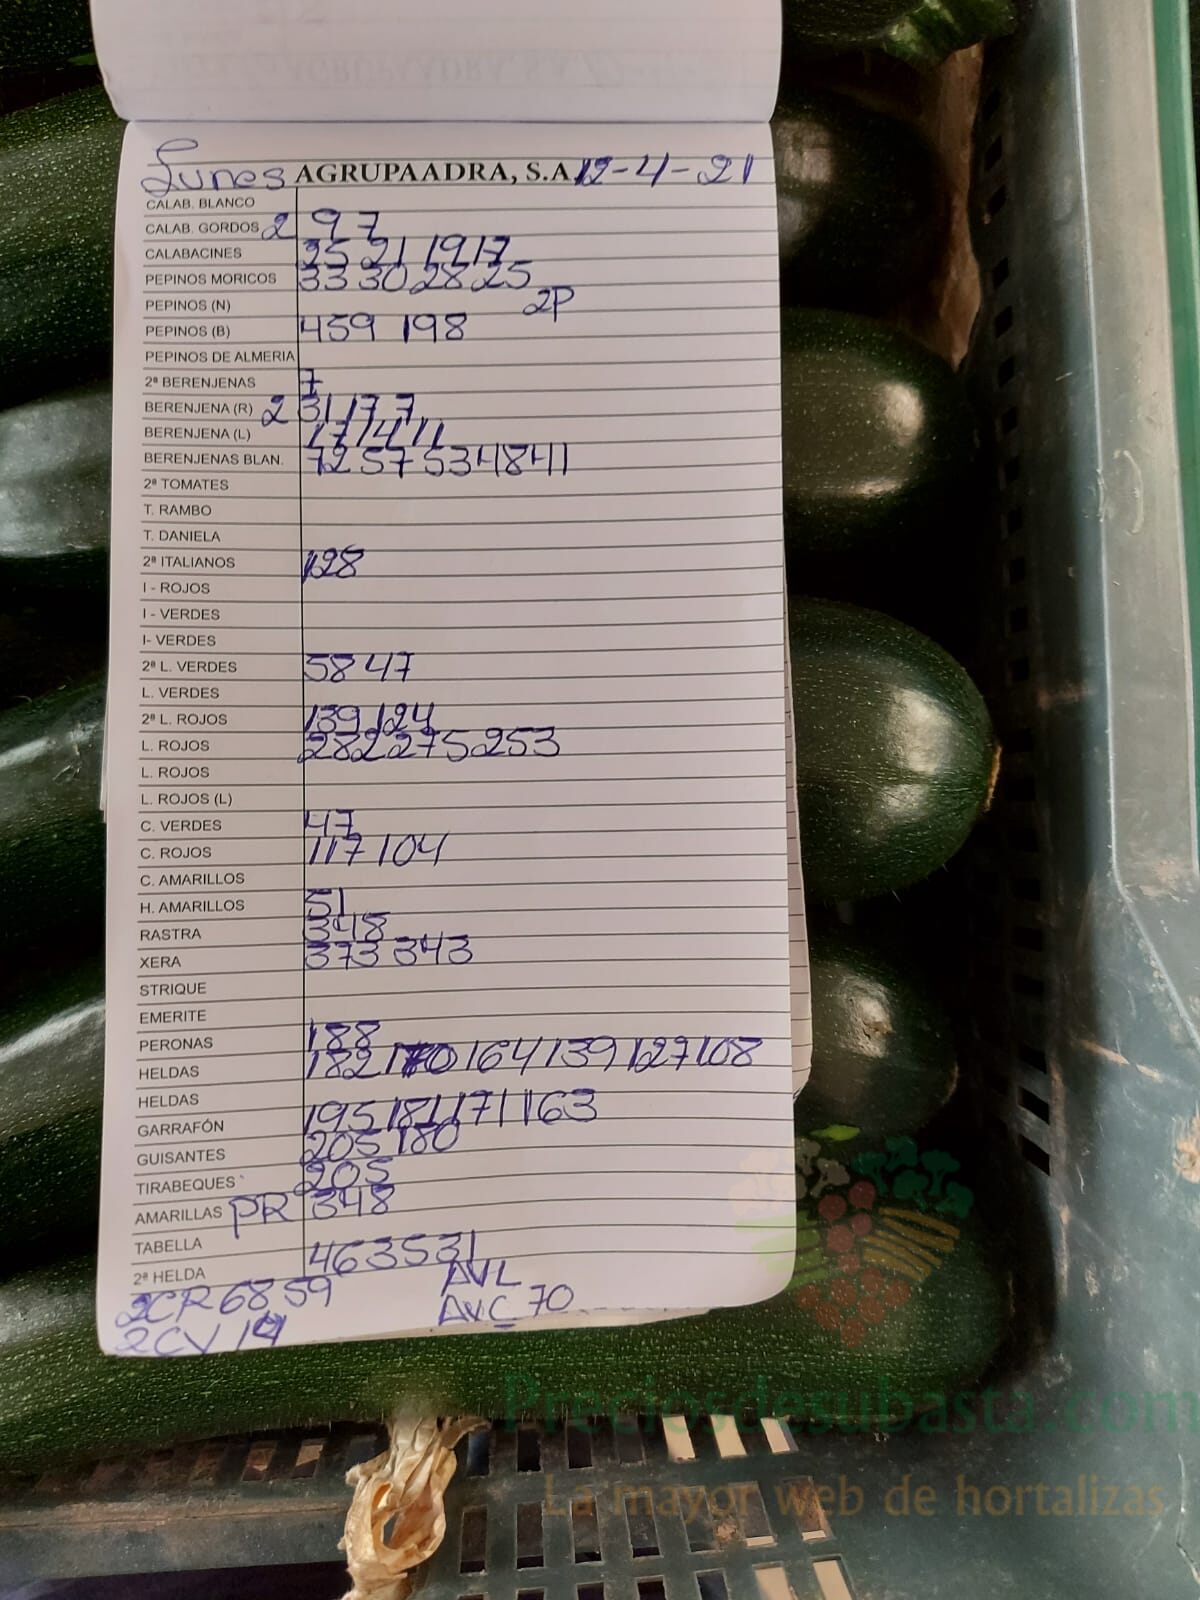 Lunes AGRUPAADRA, S.A. 12-4-21
CALAB. BLANCO
CALAB. GORDOS 2 9 7
CALABACINES 25 21 19 17
PEPINOS MORICOS 33 30 28 25
PEPINOS (N) 2P
PEPINOS (B) 459 198
PEPINOS DE ALMERIA
2ª BERENJENAS 7
BERENJENA (R) 2 31 17 7
BERENJENA (L) 17 14 11
BERENJENAS BLAN. 72 57 53 48 41
2ª TOMATES
T. RAMBO
T. DANIELA
2ª ITALIANOS 128
I - ROJOS
I - VERDES
I- VERDES
2ª L. VERDES 58 47
L. VERDES
2ª L. ROJOS 139 124
L. ROJOS 282 275 253
L. ROJOS
L. ROJOS (L)
C. VERDES 47
C. ROJOS 117 104
C. AMARILLOS
H. AMARILLOS 51
RASTRA 348
XERA 373 343
STRIQUE
EMERITE
PERONAS 188
HELDAS 182 170 164 139 127 108
HELDAS
GARRAFÓN 195 181 171 163
GUISANTES 205 180
TIRABEQUES 205
AMARILLAS PR 348
TABELLA
2ª HELDA 46 35 31
2CR 68 59 AVL
2CV 14 AVC 70
Preciosdesubasta.com
La mayor web de hortalizas